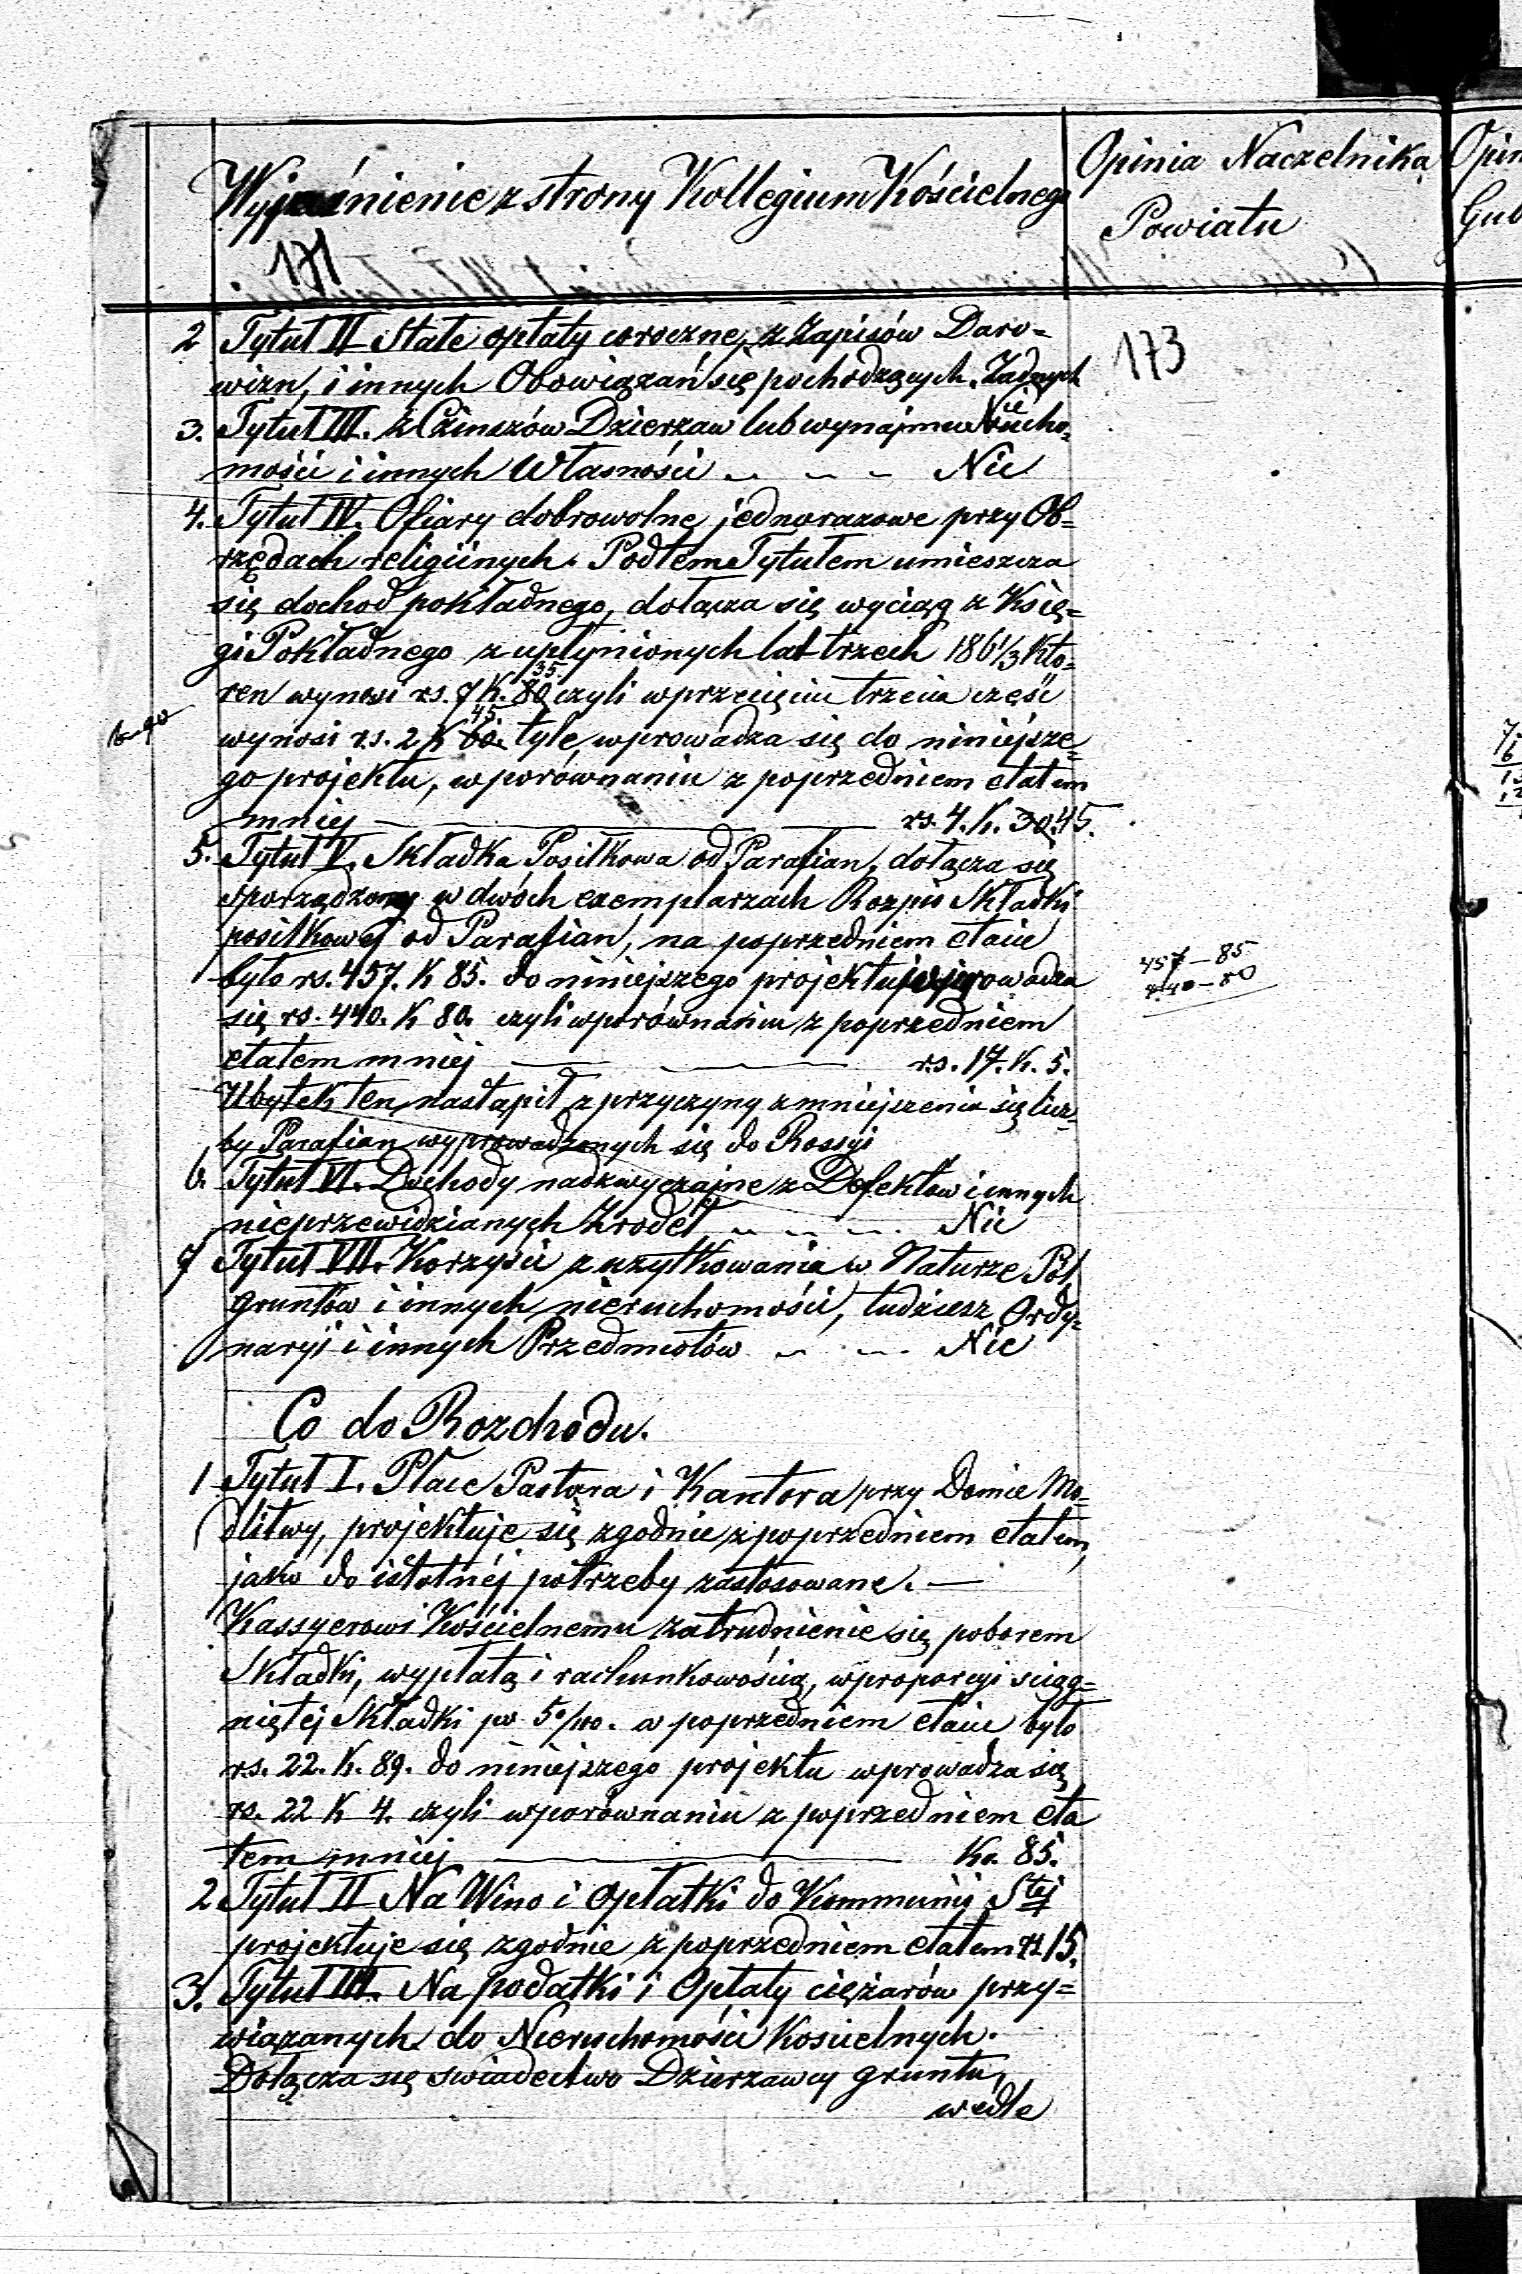 Wyjaśnienie z strony Kollegium Kościelnego
Opinia Naczelnika
Powiatu
Opin
Gub
171
173
2 Tytuł II Stałe opłaty coroczne, z Zapisów Daro=
wizn, i innych Obowiązań się pochodzących. Żadnych
3. Tytuł III. z Czinszów Dzierzaw lub wynajmu Nieucho=
mości i innych Własności Nic
4. Tytuł IV. Ofiary dobrowolne jednorazowe przy Ob=
rzędach religiinych. Pod tem Tytułem umieszcza
się dochod pokładnego, dołącza się wyciąg z Księ=
gi Pokładnego z upłynionych lat trzech 186 1/3 Kto=
35.
ren wynosi rs. 7 K. 80 czyli w przecięciu trzecia część
45.
wynosi rs. 2 K 60. tyle wprowadza się do niniejsze=
go projektu, w porównaniu z poprzedniem etatem
mniej — rs. 4. k. 30. 45.
5. Tytuł V. Składka Posiłkowa od Parafian, dołącza się
sporządzony w dwóch exemplarzach Rozpis Składki
posiłkowej od Parafian, na poprzedniem etacie
było rs. 457. K 85. do niniejszego projektu wprowadza
457 – 85
440 – 80
się rs. 440. K 80. czyli w porównaniu z poprzedniem
etatem mniej — rs. 17. k. 5.
Ubytek ten nastąpił z przyczyny zmniejszenia się licz=
by Parafian wyprowadzonych się do Rossyi
6. Tytuł VI. Dochody nadzwyczajne z Defektów i innych
nieprzewidzianych Źrodeł Nic
7 Tytuł VII. Korzyści z użytkowania w Naturze Pól,
gruntów i innych nieruchomości, tudziesz Ordy=
naryi i innych Przedmiotów Nic
Co do Rozchodu.
1 Tytuł I. Płace Pastora i Kantora przy Domie Mo=
dlitwy, projektuje się zgodnie z poprzedniem etatem,
jako do istotnéj potrzeby zastosowane. —
Kassyerowi Kościelnemu zatrudnienie się poborem
Składki, wypłatą i rachunkowością, w proporcyi sciąg=
niętej Składki po 5 0/100. w poprzedniem etacie było
rs. 22. K. 89. do niniejszego projektu wprowadza się
rs. 22 K 4. czyli w porównaniu z poprzedniem eta
tem mniej — Ko. 85.
2 Tytuł II Na Wino i Opłatki do Kommunii Stej
projektuje się zgodnie z poprzedniem etatem rs 15.
3. Tytuł III. Na podatki i Opłaty ciężarów przy=
wiązanych do Nieruchomości Kościelnych.
Dołącza się swiadectwo Dzierzawcy gruntu,
wedle